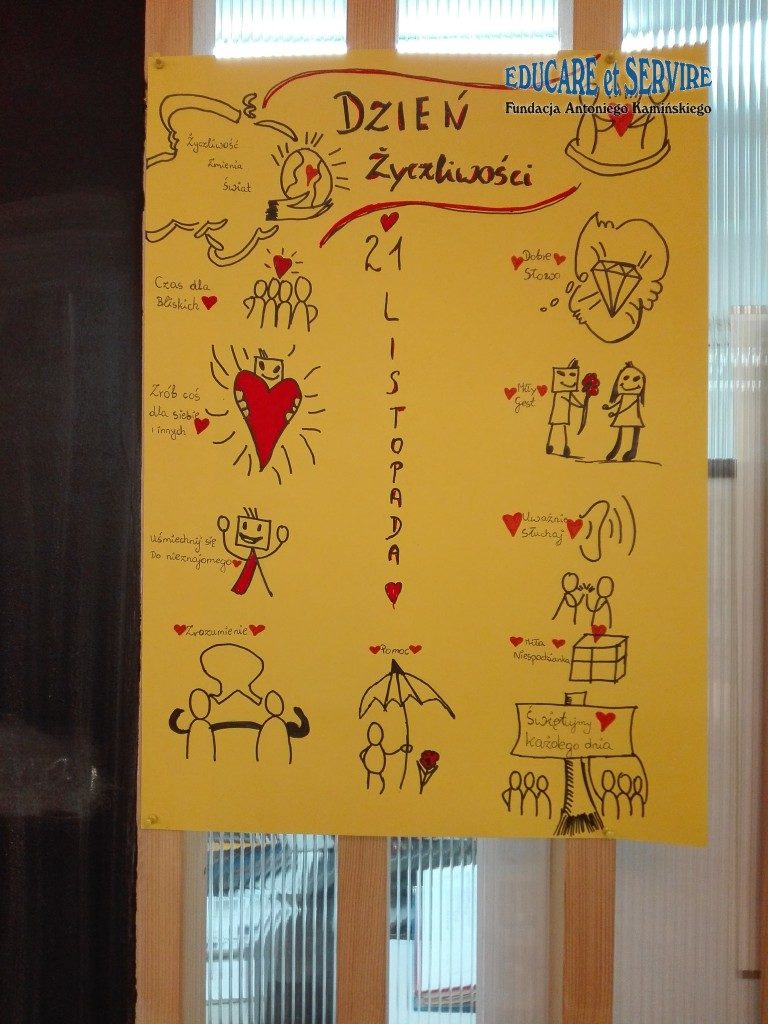 EDUCARE et SERVIRE
Fundacja Antoniego Kamińskiego
DZIEŃ
Życzliwości
Życzliwość
Zmienia
Świat
21
LISTOPADA
Czas dla
Bliskich
Zrób coś
dla siebie
i innych
Uśmiechnij się
Do nieznajomego
Zrozumienie
Pomoc
Dobre
Słowo
Miły
Gest
Uważnie
Słuchaj
Miła
Niespodzianka
Świętujmy
Każdego dnia